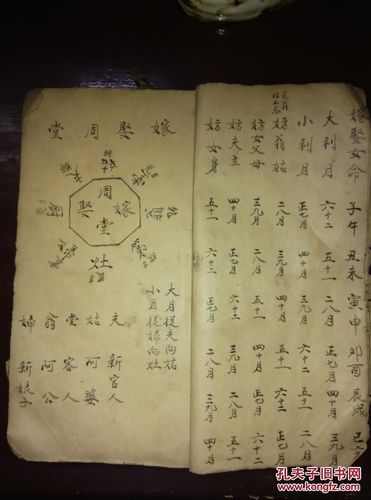 嫁娶女命 子午 丑未 寅申 卯酉 辰戌 巳亥
大利月 六十二 五十一 二八月 正七月 四十月 三九月
小利月 正七月 四十月 三九月 六十二 五十一 二八月
妨翁姑 二八月 三九月 四十月 五十一 六十二 正七月
妨女父母 三九月 二八月 五十一 四十月 正七月 六十二
妨夫主 四十月 正七月 六十二 三九月 二八月 五十一
妨女身 五十一 六十二 正七月 二八月 三九月 四十月
嫁娶周堂
周
嫁 娶
堂
灶
大月從夫向姑
小月從婦向灶
夫 新官人
姑 阿婆
堂 客人
翁 阿公
婦 新娘子
孔夫子旧书网